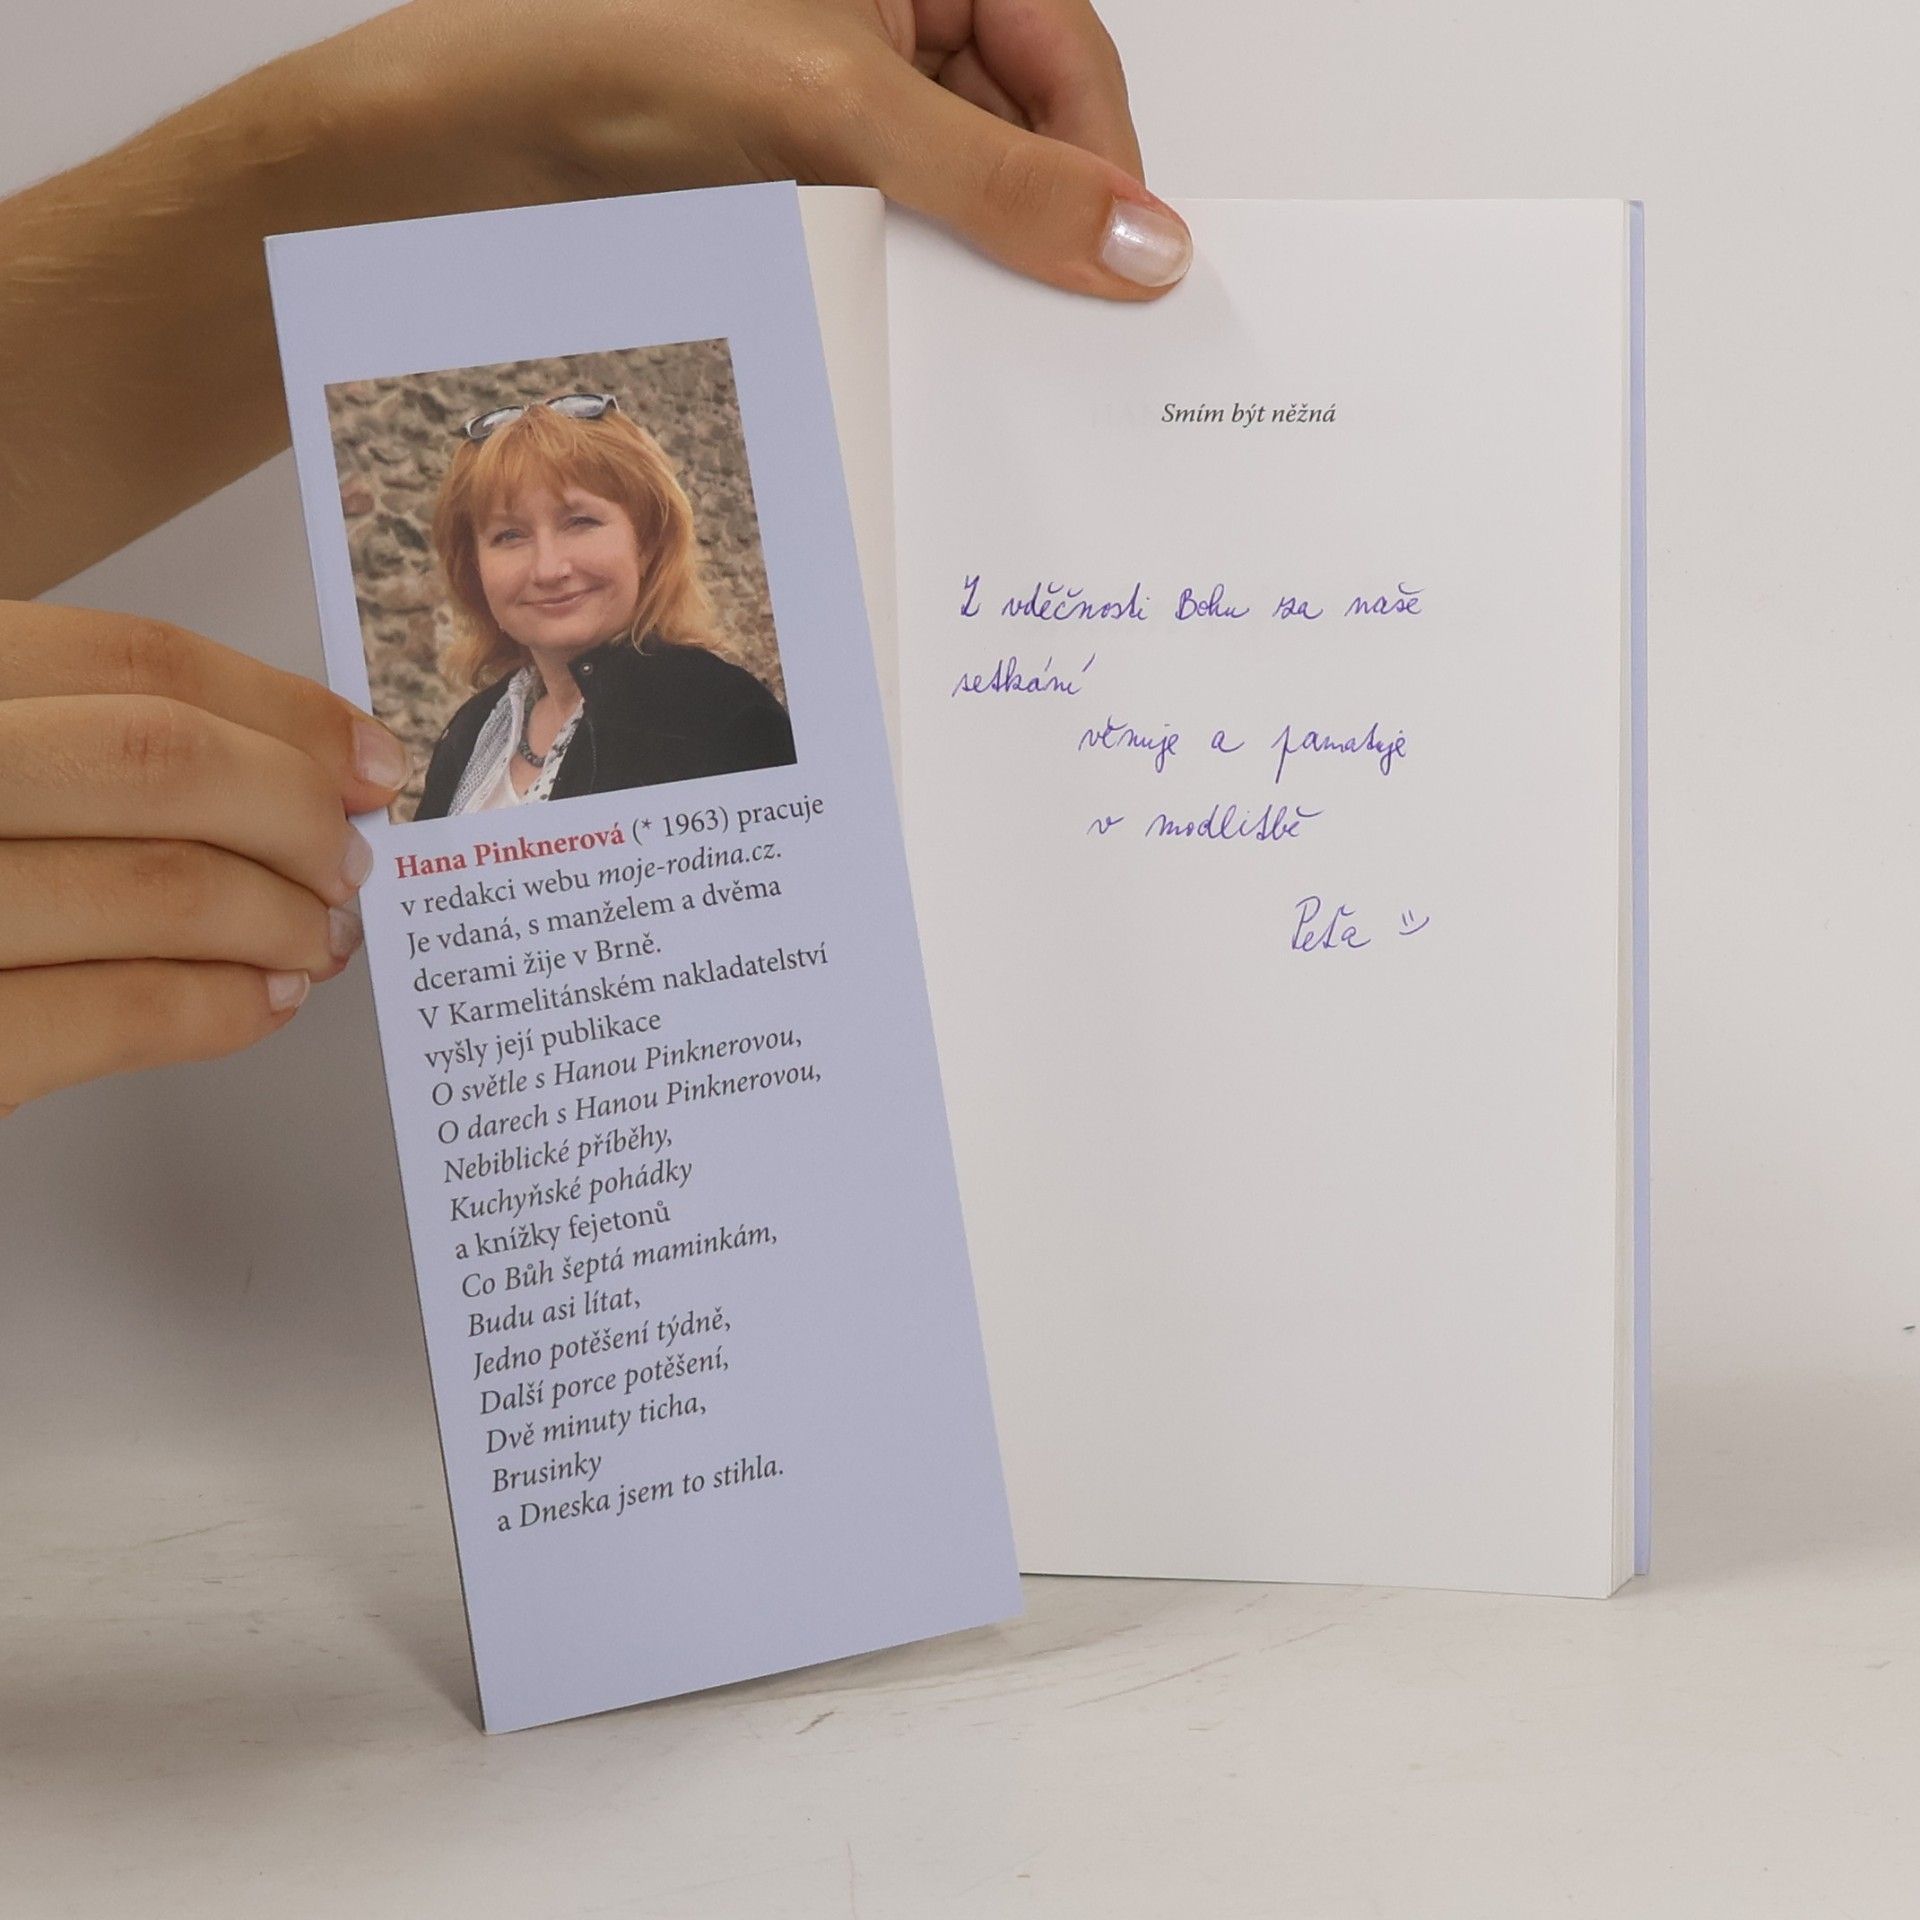 Hana Pinknerová (* 1963) pracuje
v redakci webu moje-rodina.cz.
Je vdaná, s manželem a dvěma
dcerami žije v Brně.
V Karmelitánském nakladatelství
vyšly její publikace
O světle s Hanou Pinknerovou,
O darech s Hanou Pinknerovou,
Nebiblické příběhy,
Kuchyňské pohádky
a knížky fejetonů
Co Bůh šeptá maminkám,
Budu asi lítat,
Jedno potěšení týdně,
Další porce potěšení,
Dvě minuty ticha,
Brusinky
a Dneska jsem to stihla.
Smím být něžná
Z vděčnosti Bohu za naše
setkání
věnuje a pamatuje
v modlitbě
Peťa